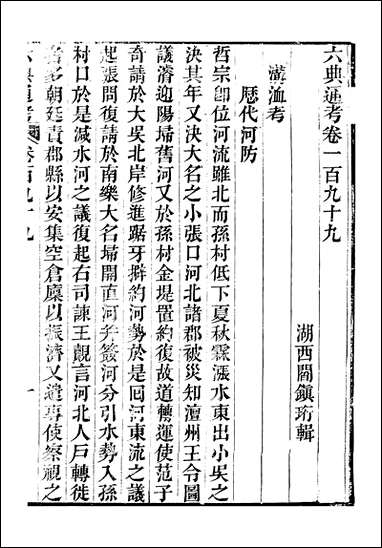 六典通考卷一百九十九
湖西閻鎮珩輯
溝洫考
歷代河防
哲宗卽位河流雖北而孫村低下夏秋霖漲水東出小吳之
決其年又決大名之小張口河北諸郡被災知澶州王令圖
議濬迎陽埽舊河又於孫村金堤置約復故道轉運使范子
奇請於大吳北岸修進踞牙擗約河勢於是囘河東流之議
起張問復請於南樂大名埽開直河并簽河分引水勢入孫
村口於是減水河之議復起右司諫王覿言河北人戶轉徙
者多朝廷責郡縣以安集空倉廩以振濟又遣專使察視之
六典通考 卷百九十九 一